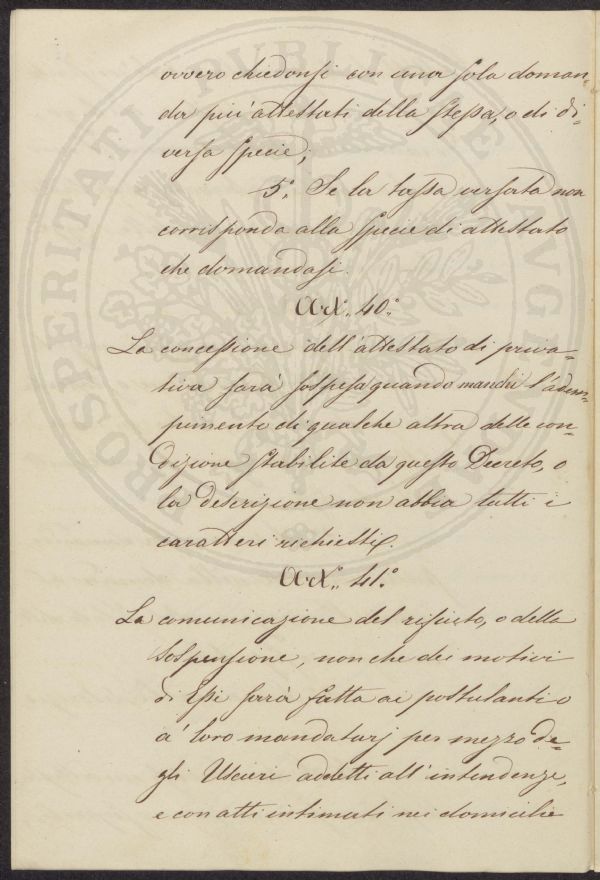 ovvero chiedonsi con una sola doman-
da piu' attestati della stessa, o di di-
versa specie;
5.° Se la tassa versata non
corrisponda alla specie di attestato
che domandasi.
Art.° 40.°
La concessione dell'attestato di priva-
tiva sarà sospesa quando manchi l'adem-
pimento di qualche altra delle con-
dizione stabilite da questo Decreto, o
la descrizione non abbia tutti i
caratteri richiesti.
Art.° 41.°
La comunicazione del rifiuto, o della
sospensione, non che dei motivi
di essi sarà fatta ai postulanti o
a' loro mandatarj per mezzo de-
gli Uscieri addetti all'intendenze,
e con atti intimati nei domicilii
PROSPERITATI PUBLICAE AUGENDAE